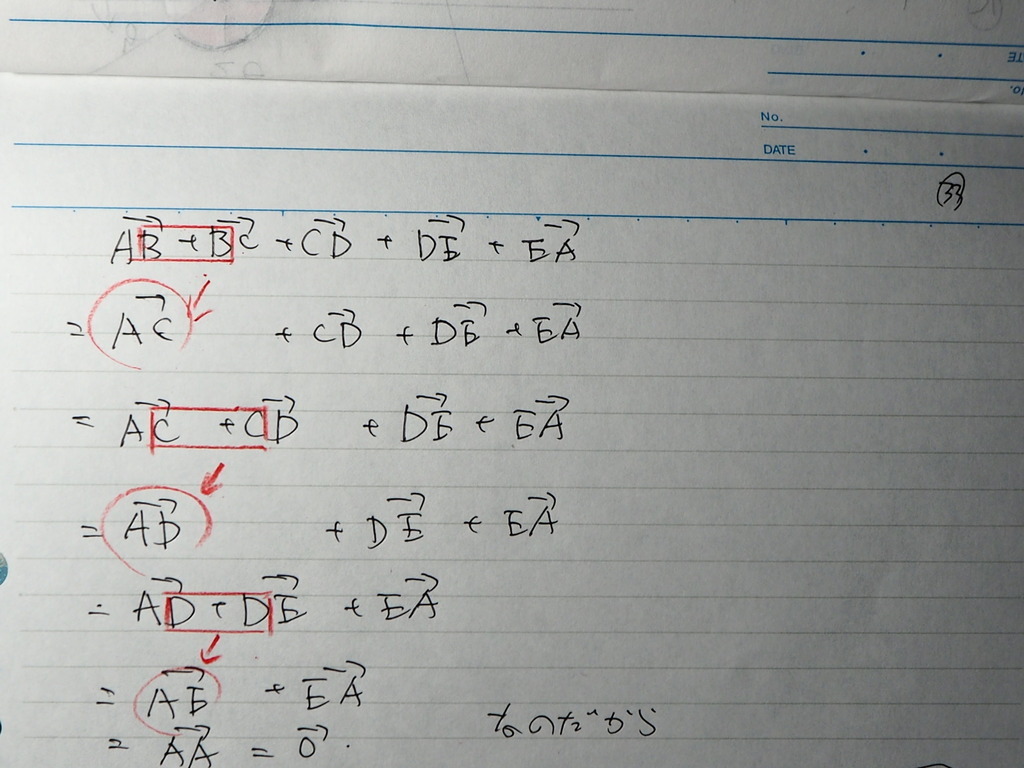 No.
DATE
㉝
\overrightarrow{AB} + \overrightarrow{BC} + \overrightarrow{CD} + \overrightarrow{DE} + \overrightarrow{EA}
= \overrightarrow{AC} + \overrightarrow{CD} + \overrightarrow{DE} + \overrightarrow{EA}
= \overrightarrow{AC} + \overrightarrow{CD} + \overrightarrow{DE} + \overrightarrow{EA}
= \overrightarrow{AD} + \overrightarrow{DE} + \overrightarrow{EA}
= \overrightarrow{AD} + \overrightarrow{DE} + \overrightarrow{EA}
= \overrightarrow{AE} + \overrightarrow{EA}
= \overrightarrow{AA} = \overrightarrow{0}.